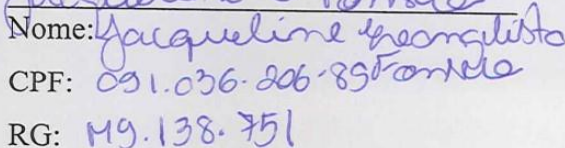 Nome: Jacqueline Evangelista
CPF: 091.036.206-89 Fonseca
RG: M9.138.751